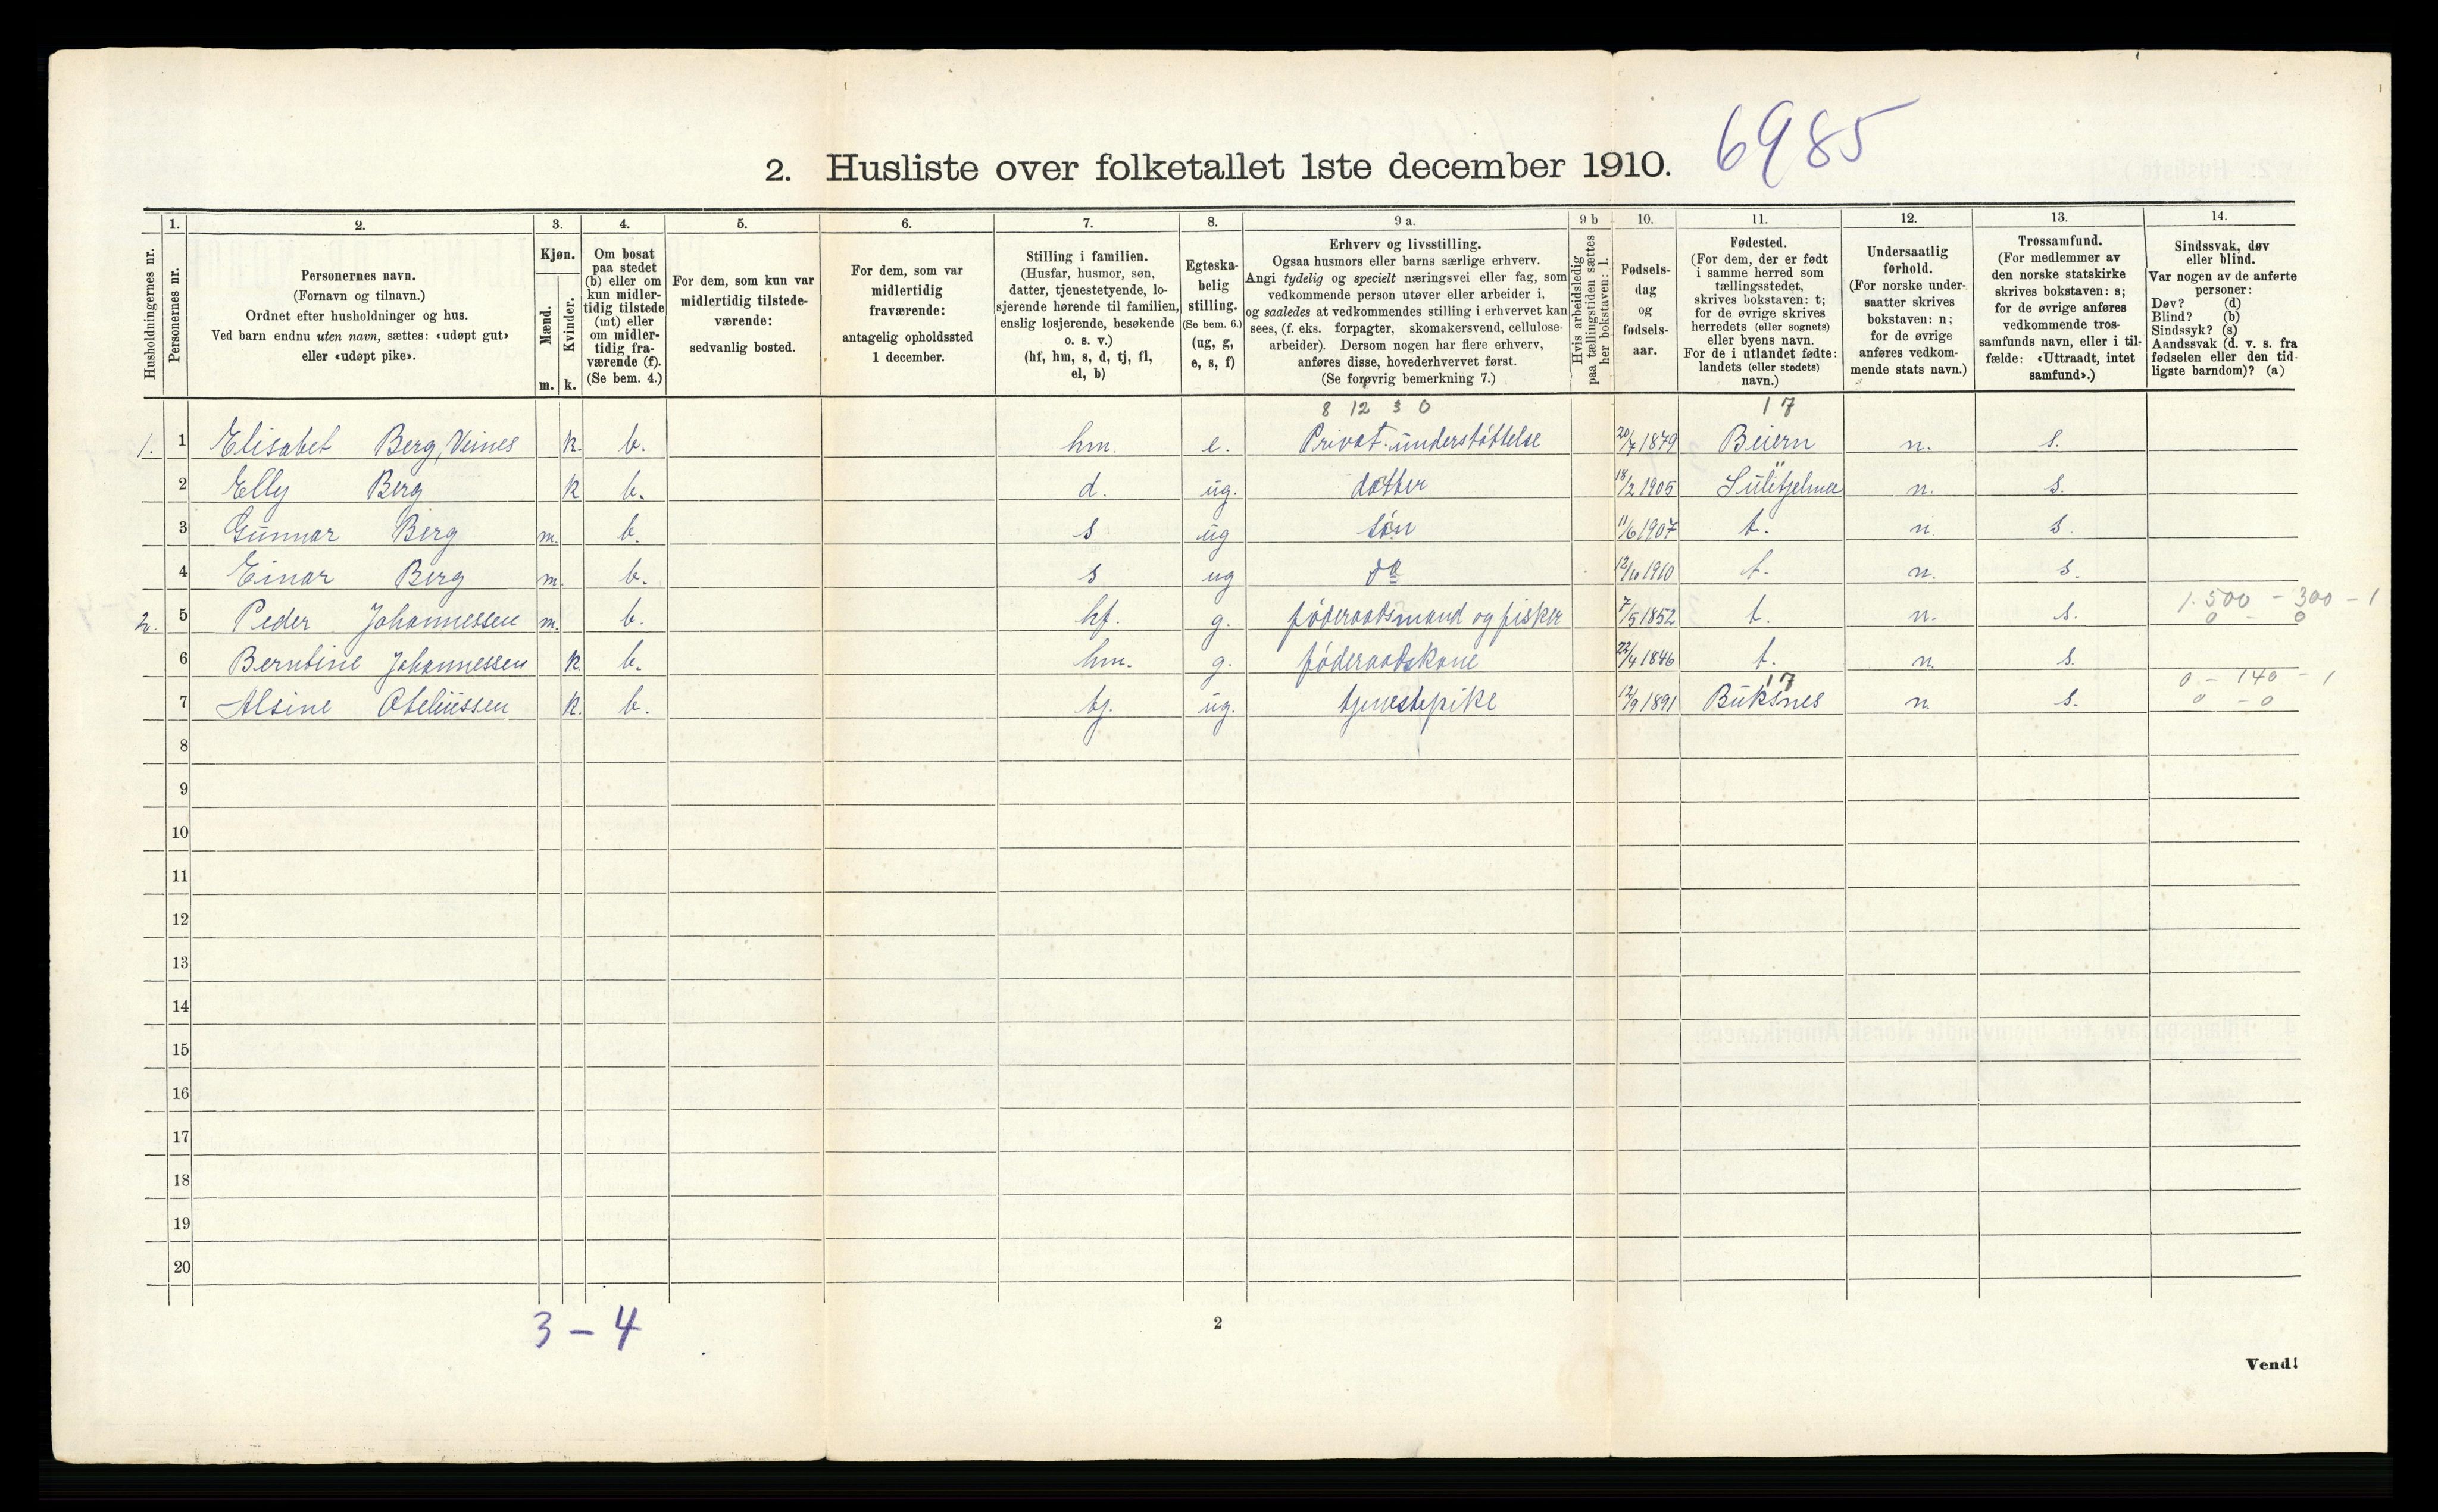 2. Husliste over folketallet 1ste december 1910. 6985
Husholdningernes nr.
1.
Personernes nr.
2.
Personernes navn.
(Fornavn og tilnavn.)
Ordnet efter husholdninger og hus.
Ved barn endnu uten navn, sættes: «udøpt gut»
eller «udøpt pike».
3.
Kjøn.
Mænd.
m.
Kvinder.
k.
4.
Om bosat
paa stedet
(b) eller om
kun midler-
tidig tilstede
(mt) eller
om midler-
tidig fra-
værende (f).
(Se bem. 4.)
5.
For dem, som kun var
midlertidig tilstede-
værende:
sedvanlig bosted.
6.
For dem, som var
midlertidig
fraværende:
antagelig opholdssted
1 december.
7.
Stilling i familien.
(Husfar, husmor, søn,
datter, tjenestetyende, lo-
sjerende hørende til familien,
enslig losjerende, besøkende
o. s. v.)
(hf, hm, s, d, tj, fl,
el, b)
8.
Egteska-
belig
stilling.
(Se bem. 6.)
(ug, g,
e, s, f)
9 a.
Erhverv og livsstilling.
Ogsaa husmors eller barns særlige erhverv.
Angi tydelig og specielt næringsvei eller fag, som
vedkommende person utøver eller arbeider i,
og saaledes at vedkommendes stilling i erhvervet kan
sees, (f. eks. forpagter, skomakersvend, cellulose-
arbeider). Dersom nogen har flere erhverv,
anføres disse, hovederhvervet først.
(Se forøvrig bemerkning 7.)
9 b
Hvis arbeidsledig
paa tællingstiden sættes
her bokstaven: l.
10.
Fødsels-
dag
og
fødsels-
aar.
11.
Fødested.
(For dem, der er født
i samme herred som
tællingsstedet,
skrives bokstaven: t;
for de øvrige skrives
herredets (eller sognets)
eller byens navn.
For de i utlandet fødte:
landets (eller stedets)
navn.)
12.
Undersaatlig
forhold.
(For norske under-
saatter skrives
bokstaven: n;
for de øvrige
anføres vedkom-
mende stats navn.)
13.
Trossamfund.
(For medlemmer av
den norske statskirke
skrives bokstaven: s;
for de øvrige anføres
vedkommende tros-
samfunds navn, eller i til-
fælde: «Uttraadt, intet
samfund».)
14.
Sindssvak, døv
eller blind.
Var nogen av de anførte
personer:
Døv? (d)
Blind? (b)
Sindssyk? (s)
Aandssvak (d. v. s. fra
fødselen eller den tid-
ligste barndom)? (a)
8 12 3 0 17
1. 1 Elisabet Berg, Veines k. b. hm. e. Privat understøttelse 20/7 1879 Beiern n. s.
2 Elly Berg k b. d. ug. datter 18/2 1905 Sulitjelma n. s.
3 Gunnar Berg m. b. s ug søn 11/6 1907 t. n s.
4 Einar Berg m. b. s ug do 1910 t. n. s.
1.500 - 300 - 1
2. 5 Peder Johannessen m. b. hf. g. føderaadsmand og fisker 7/5 1852 t. n. s. 0 - 0
6 Berntine Johannessen k. b. hm. g. føderaadskone 22/4 1846 t. n. s.
17 0 - 140 - 1
7 Alsine Oteliussen k. b. tj. ug. tjenestepike 12/9 1891 Buksnes n. s. 0 - 0
8
9
10
11
12
13
14
15
16
17
18
19
20
3 - 4
2
Vend!